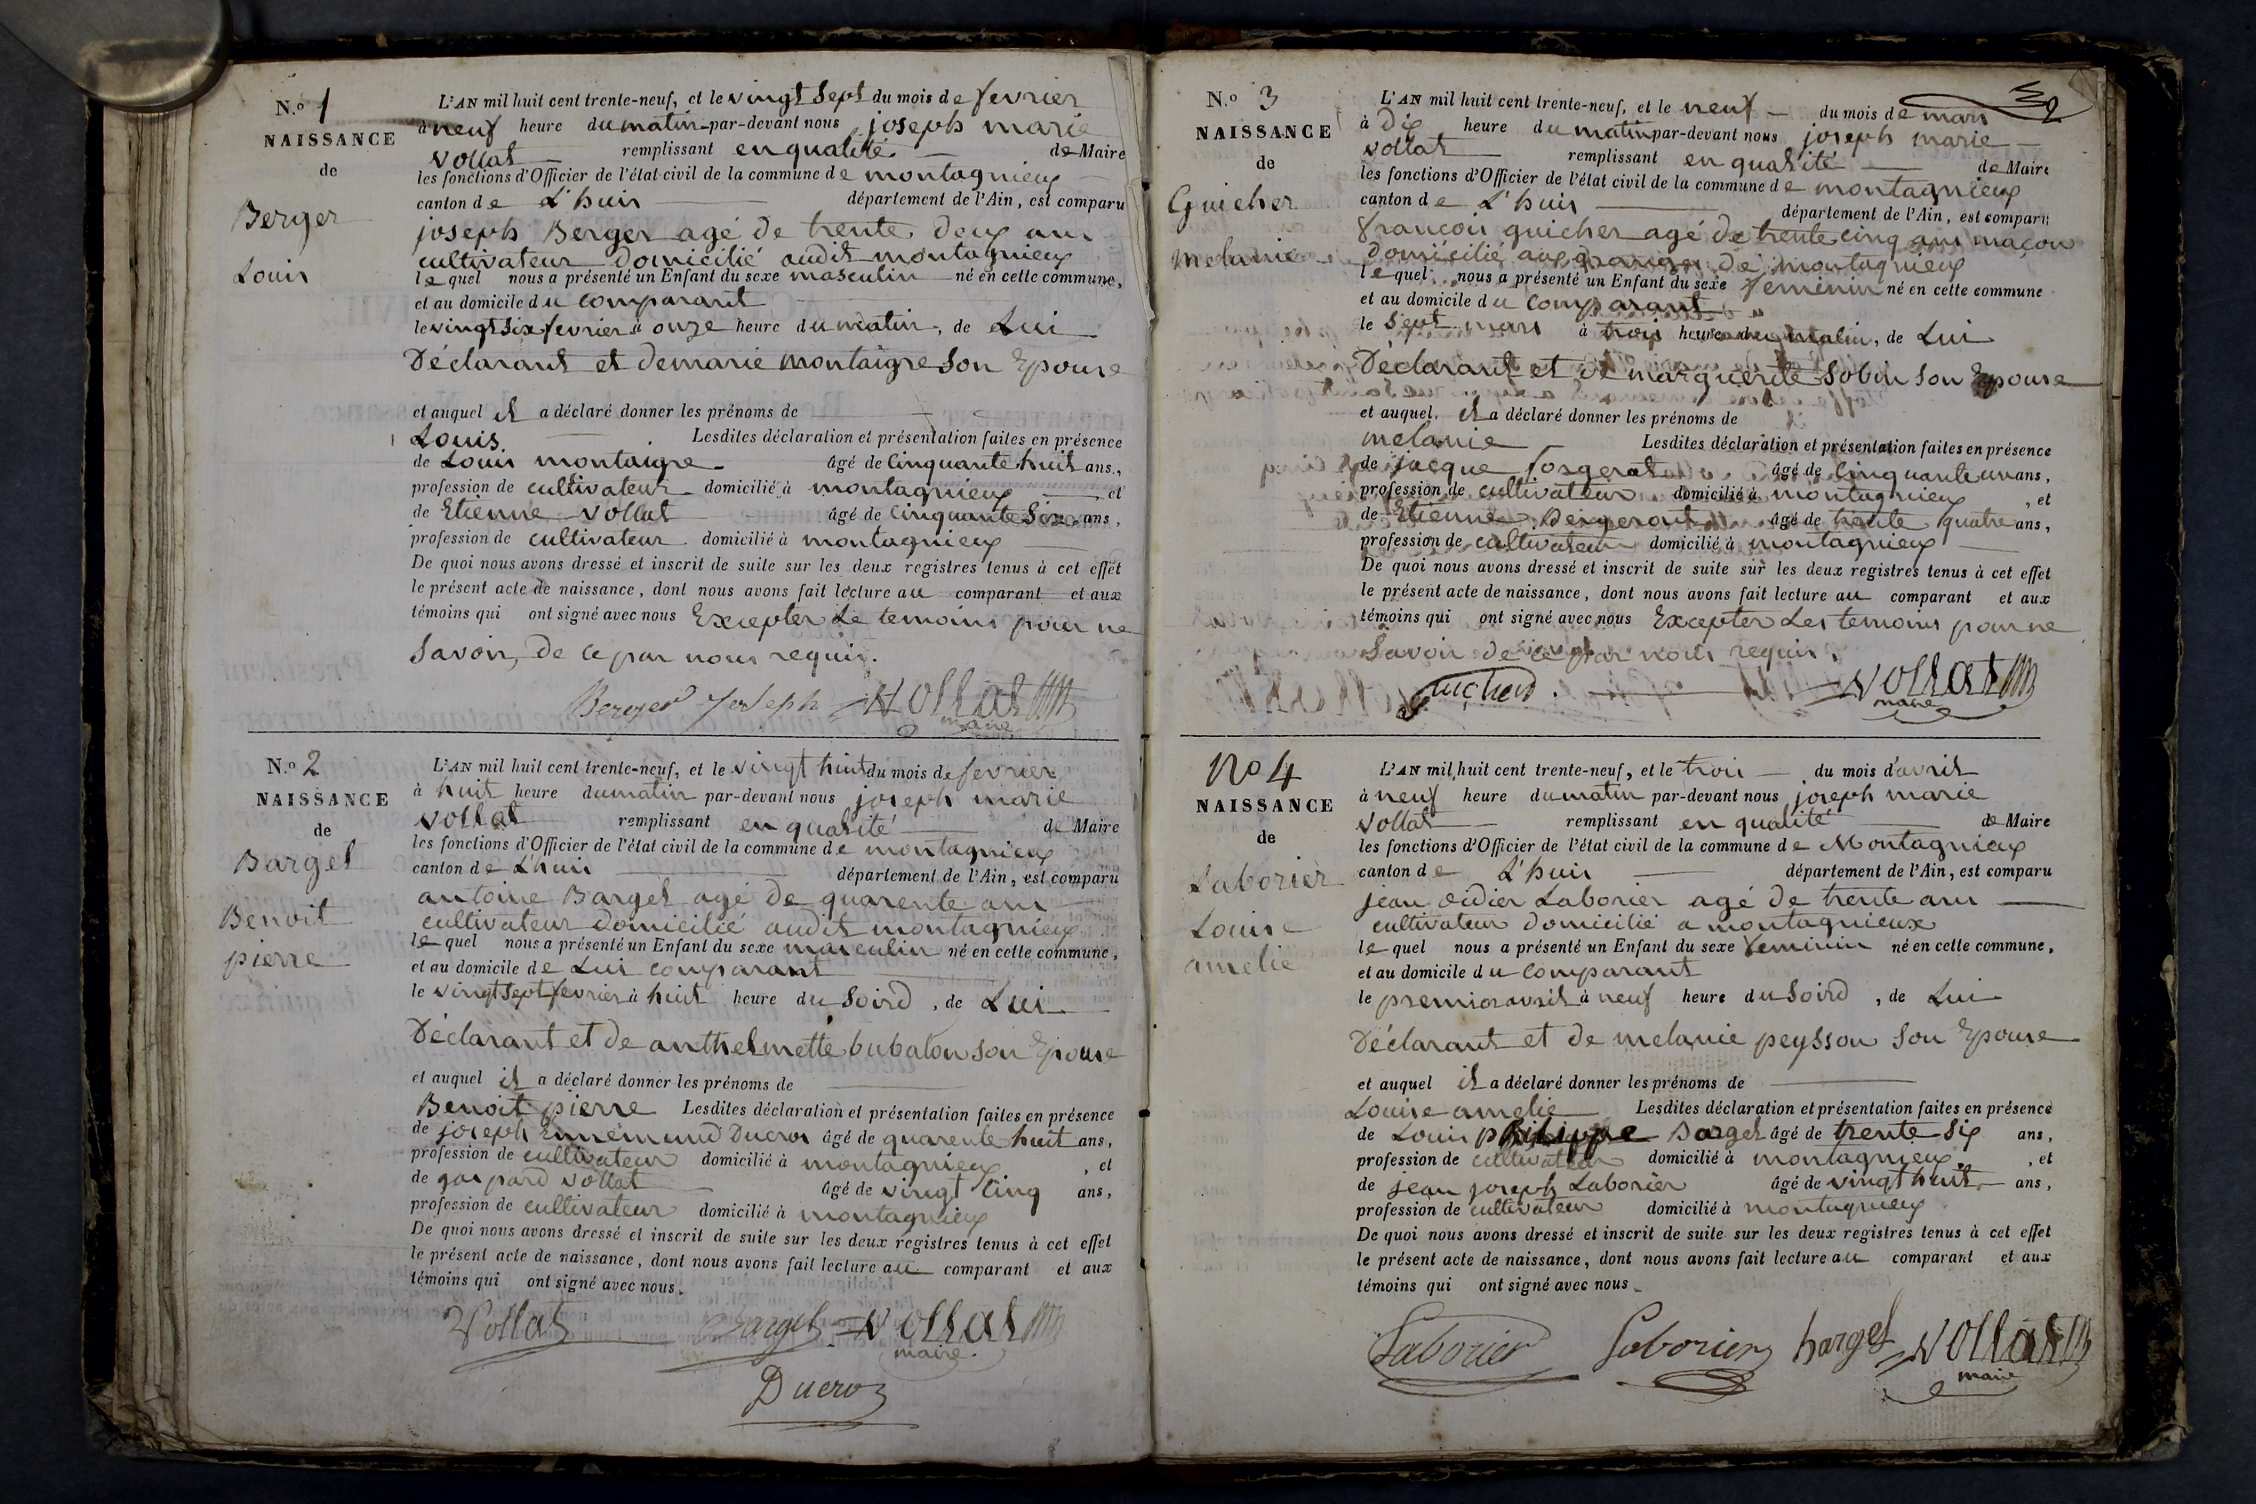 N.o 1
NAISSANCE
de
Berger
Louis
L'AN mil huit cent trente-neuf, et le vingt sept du mois de fevrier
à neuf heure du matin par-devant nous joseph marie
vollat remplissant en qualité de Maire
les fonctions d'Officier de l'état civil de la commune de montagnieux
canton de L'huis département de l'Ain, est comparu
joseph Berger agé de trente deux ans
cultivateur domicilié audit montagnieux
le quel nous a présenté un Enfant du sexe masculin né en cette commune,
et au domicile du comparant
le vingt six fevrier à onze heure du matin, de Lui
Déclarant et de marie montaigre son Epouse
et auquel il a déclaré donner les prénoms de
Louis. Lesdites déclaration et présentation faites en présence
de Louis montaigre âgé de Cinquante huit ans,
profession de cultivateur domicilié à montagnieux et
de Etienne vollat âgé de Cinquante Six ans,
profession de cultivateur domicilié à montagnieux
De quoi nous avons dressé et inscrit de suite sur les deux registres tenus à cet effet
le présent acte de naissance, dont nous avons fait lecture au comparant et aux
témoins qui ont signé avec nous Excepter Le temoins pour ne
Savoir, de ce par nous requis.
Berger Joseph vollat
maire
N.o 2
NAISSANCE
de
Barget
Benoit
pierre
L'AN mil huit cent trente-neuf, et le vingt huit du mois de fevrier
à huit heure du matin par-devant nous joseph marie
vollat remplissant en qualité de Maire
les fonctions d'Officier de l'état civil de la commune de montagnieux
canton de L'huis département de l'Ain, est comparu
antoine Barget agé de quarente ans
cultivateur domicilié audit montagnieux
le quel nous a présenté un Enfant du sexe masculin né en cette commune,
et au domicile de Lui comparant
le vingt sept fevrier à huit heure du Soird, de Lui
Déclarant et de anthelmette bubaton son Epouse
et auquel il a déclaré donner les prénoms de
Benoit pierre Lesdites déclaration et présentation faites en présence
de joseph Ennemund Ducros âgé de quarente huit ans,
profession de cultivateur domicilié à montagnieux, et
de gaspard vollat âgé de vingt Cinq ans,
profession de cultivateur domicilié à montagnieux
De quoi nous avons dressé et inscrit de suite sur les deux registres tenus à cet effet
le présent acte de naissance, dont nous avons fait lecture au comparant et aux
témoins qui ont signé avec nous.
Vollat Barget vollat
maire
Ducroz
N.o 3
NAISSANCE
de
Guicher
melanie
L'AN mil huit cent trente-neuf, et le neuf du mois de mars
à Dix heure du matin par-devant nous joseph marie
vollat remplissant en qualité de Maire
les fonctions d'Officier de l'état civil de la commune de montagnieux
canton de L'huis département de l'Ain, est comparu
françois guicher agé de trente cinq ans maçon
domicilié aux granges de montagnieux
le quel nous a présenté un Enfant du sexe feminin né en cette commune
et au domicile du comparant
le Sept mars à trois heure du matin, de Lui
Déclarant et de marguerite Sobin son Epouse
et auquel il a déclaré donner les prénoms de
melanie Lesdites déclaration et présentation faites en présence
de jacque forgerat âgé de Cinquante un ans,
profession de cultivateur domicilié à montagnieux, et
de Etienne Bergeront âgé de trente quatre ans,
profession de cultivateur domicilié à montagnieux
De quoi nous avons dressé et inscrit de suite sur les deux registres tenus à cet effet
le présent acte de naissance, dont nous avons fait lecture au comparant et aux
témoins qui ont signé avec nous Excepter Les temoins pour ne
Savoir de ce par nous requis,
Guicherd. vollat
maire
No 4
NAISSANCE
de
Laborier
Louise
amelie
L'AN mil huit cent trente-neuf, et le trois du mois d'avril
à neuf heure du matin par-devant nous joseph marie
vollat remplissant en qualité de Maire
les fonctions d'Officier de l'état civil de la commune de Montagnieux
canton de L'huis département de l'Ain, est comparu
jean didier Laborier agé de trente ans
cultivateur domicilié a montagnieux
le quel nous a présenté un Enfant du sexe feminin né en cette commune,
et au domicile du comparant
le premier avril à neuf heure du Soird, de Lui
Déclarant et de melanie peysson son Epouse
et auquel il a déclaré donner les prénoms de
Louise amelie Lesdites déclaration et présentation faites en présence
de Louis philippe Barget âgé de trente Six ans,
profession de cultivateur domicilié à montagnieux, et
de jean joseph Laborier âgé de vingt huit ans,
profession de cultivateur domicilié à montagnieux
De quoi nous avons dressé et inscrit de suite sur les deux registres tenus à cet effet
le présent acte de naissance, dont nous avons fait lecture au comparant et aux
témoins qui ont signé avec nous.
Laborier Laborier barget vollat
maire